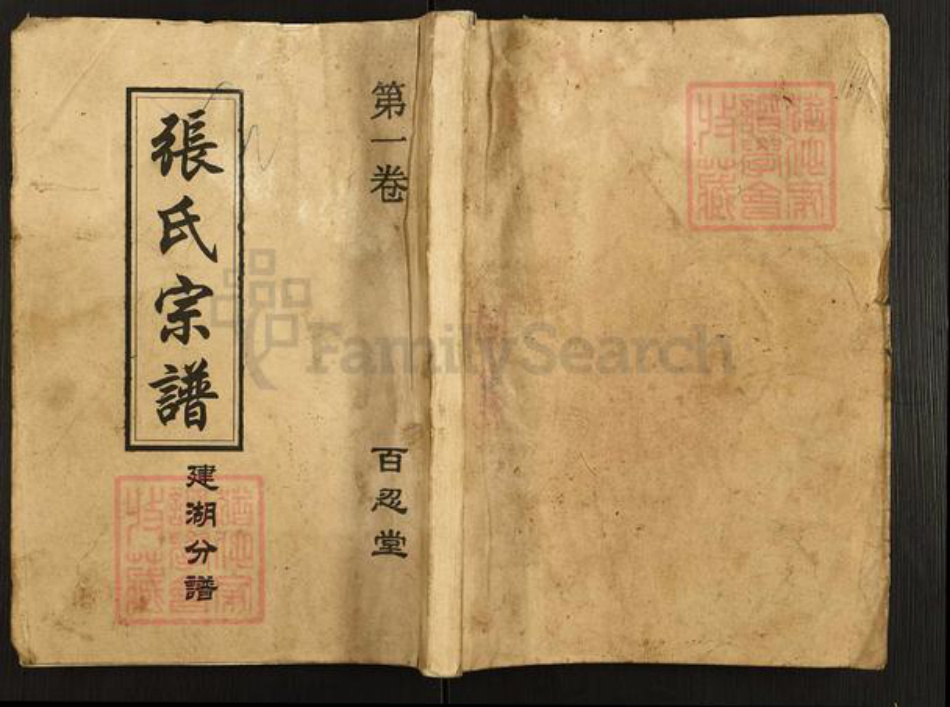 第一卷
百忍堂
張氏宗譜
建湖分譜
FamilySearch